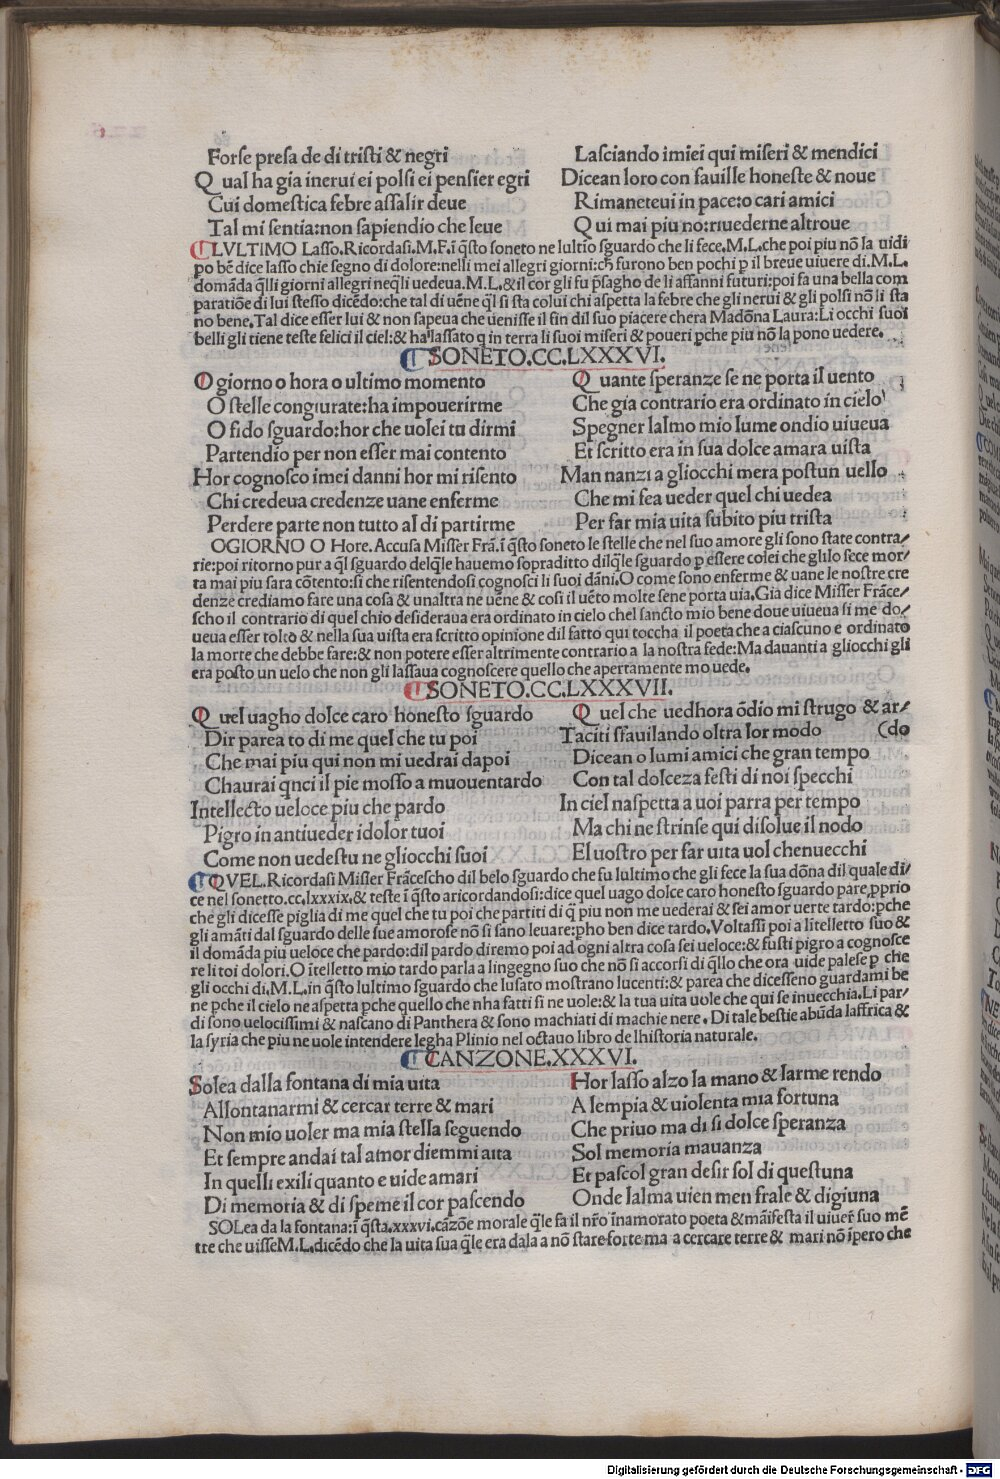 Forse presa de di tristi & negri
Qual ha gia inerui ei polsi ei pensier egri
Cui domestica febre assalir deue
Tal mi sentia:non sapiendio che leue
Lasciando imiei qui miseri & mendici
Dicean loro con fauille honeste & noue
Rimaneteui in pace:o cari amici
Qui mai piu no:riuederne altroue
LVLTIMO Lasso.Ricordasi.M.F.ĩ q̃sto soneto ne lultio sguardo che li fece.M.L.che poi piu nõ la uidi
po bẽ dice lasso chie segno di dolore:nelli mei allegri giorni:ch furono ben pochi p il breue uiuere di.M.L.
domãda q̃lli giorni allegri neq̃li uedeua.M.L.& il cor gli fu p̃sagho de li affanni futuri:poi fa una bella com
paratiõe di lui stesso dicẽdo:che tal di uẽne q̃l si sta colui chi aspetta la febre che gli nerui & gli polsi nõ li sta
no bene.Tal dice esser lui & non sapeua che uenisse il fin dil suo piacere chera Madõna Laura:Li occhi suoi
belli gli tiene teste felici il ciel:& ha lassato q in terra li suoi miseri & poueri pche piu nõ la pono uedere.
SONETO.CC.LXXXVI.
O giorno o hora o ultimo momento
O stelle congiurate:ha impouerirme
O fido sguardo:hor che uolei tu dirmi
Partendio per non esser mai contento
Hor cognosco imei danni hor mi risento
Chi credeua credenze uane enferme
Perdere parte non tutto al di partirme
Quante speranze se ne porta il uento
Che gia contrario era ordinato in cielo
Spegner lalmo mio lume ondio uiueua
Et scritto era in sua dolce amara uista
Man nanzi a gliocchi mera postun uello
Che mi fea ueder quel chi uedea
Per far mia uita subito piu trista
OGIORNO O Hore.Accusa Misser Frã.ĩ q̃sto soneto le stelle che nel suo amore gli sono state contra/
rie:poi ritorno pur a q̃l sguardo delq̃le hauemo sopraditto dilq̃le sguardo p essere colei che glilo fece mor/
ta mai piu sara cõtento:si che risentendosi cognosci li suoi dãni.O come sono enferme & uane le nostre cre
denze crediamo fare una cosa & unaltra ne uẽne & cosi il uẽto molte sene porta uia.Gia dice Misser Frãce/
scho il contrario di quel chio desideraua era ordinato in cielo chel sancto mio bene doue uiueua si me do/
ueua esser tolto & nella sua uista era scritto opinione dil fatto qui toccha il poeta che a ciascuno e ordinato
la morte che debbe fare:& non potere esser altrimente contrario a la nostra fede:Ma dauanti a gliocchi gli
era posto un uelo che non gli lassaua cognoscere quello che apertamente mo uede.
SONETO.CC.LXXXVII.
Quel uagho dolce caro honesto sguardo
Dir parea to di me quel che tu poi
Che mai piu qui non mi uedrai dapoi
Chaurai qnci il pie mosso a muouentardo
Intellecto ueloce piu che pardo
Pigro in antiueder idolor tuoi
Come non uedestu ne gliocchi suoi
Quel che uedhora õdio mi strugo & ar/
Taciti sfauilando oltra lor modo (do
Dicean o lumi amici che gran tempo
Con tal dolceza festi di noi specchi
In ciel naspetta a uoi parra per tempo
Ma chi ne strinse qui disolue il nodo
El uostro per far uita uol chenuecchi
QVEL.Ricordasi Misser Frãcescho dil belo sguardo che fu lultimo che gli fece la sua dõna dil quale di/
ce nel sonetto.cc.lxxxix.& teste ĩ q̃sto aricordandosi:dice quel uago dolce caro honesto sguardo pare pprio
che gli dicesse piglia di me quel che tu poi che partiti di q̃ piu non me uederai & sei amor uerte tardo:pche
gli amãti dal sguardo delle sue amorose nõ si sano leuare:pho ben dice tardo.Voltassi poi a litelletto suo &
il domãda piu ueloce che pardo:dil pardo diremo poi ad ogni altra cosa sei ueloce:& fusti pigro a cognosce
re li toi dolori.O ĩtelletto mio tardo parla a lingegno suo che nõ si accorsi di q̃llo che ora uide palese p che
gli occhi di.M.L.in q̃sto lultimo sguardo che lusato mostrano lucenti:& parea che dicesseno guardami be
ne pche il cielo ne aspetta pche quello che nha fatti si ne uole:& la tua uita uole che qui se inuecchia.Li par/
di sono uelocissimi & nascano di Panthera & sono machiati di machie nere.Di tale bestie abũda laffrica &
la syria che piu ne uole intendere legha Plinio nel octauo libro de lhistoria naturale.
CANZONE.XXXVI.
Solea dalla fontana di mia uita
Allontanarmi & cercar terre & mari
Non mio uoler ma mia stella seguendo
Et sempre andai tal amor diemmi aita
In quelli exili quanto e uide amari
Di memoria & di speme il cor pascendo
Hor lasso alzo la mano & larme rendo
A lempia & uiolenta mia fortuna
Che priuo ma di si dolce speranza
Sol memoria mauanza
Et pascol gran desir sol di questuna
Onde lalma uien men frale & digiuna
SOLea da la fontana:ĩ q̃sta.xxxvi.cãzõe morale q̃le fa il nr̃o ĩnamorato poeta & mãifesta il uiuer̃ suo mẽ
tre che uisseM.L.dicẽdo che la uita sua q̃le era dala a nõ stare forte ma a cercare terre & mari nõ ĩpero che
Digitalisierung gefördert durch die Deutsche Forschungsgemeinschaft - DFG